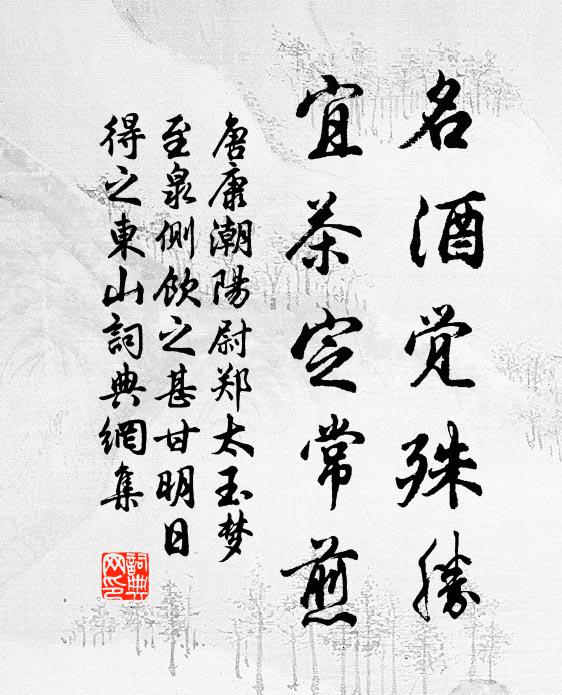 名酒觉殊勝
宜茶定常煎
唐康潮陽尉郑太玉梦
至泉側飲之甚甘明日
得之東山詞典網集
詞典
网印